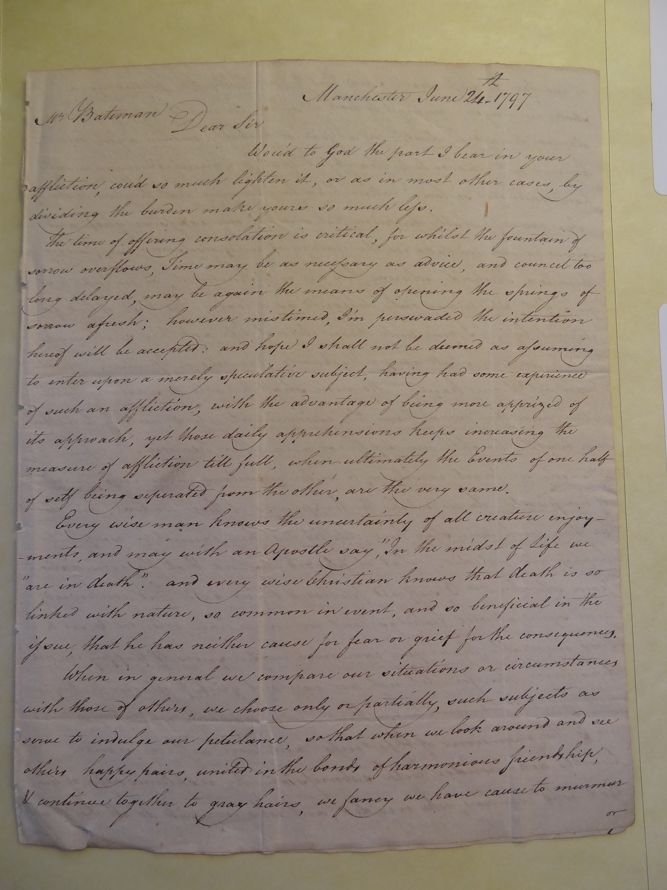 Manchester June 24th 1797
Mr Bateman Dear Sir
Wou'd to God the part I bear in your
affliction, cou'd so much lighten it, or as in most other cases, by
dividing the burden make yours so much less.
The time of offering consolation is critical, for whilst the fountain of
sorrow overflows, Time may be as necessary as advice, and council too
long delayed, may be again the means of opening the springs of
sorrow afresh; however mistimed, I'm perswaded the intention
hereof will be accepted: and hope I shall not be deemed as assuming
to enter upon a merely speculative subject, having had some experience
of such an affliction, with the advantage of being more apprized of
its approach, yet those daily apprehensions keeps increasing the
measure of affliction till full, when ultimately the Events of one half
of self being seperated from the other, are the very same.
Every wise man knows the uncertainty of all creature enjoy-
-ments, and may with an Apostle say, "In the midst of Life we
"are in death". and every wise Christian knows that death is so
linked with nature, so common in event, and so beneficial in the
issue, that he has neither cause for fear or grief for the consequences.
When in general we compare our situations or circumstances
with those of others, we choose only or partially, such subjects as
serve to indulge our petulance, so that when we look around and see
others happy pairs, united in the bonds of harmonious friendship,
& continue together to gray hairs, we fancy we have cause to murmur
or